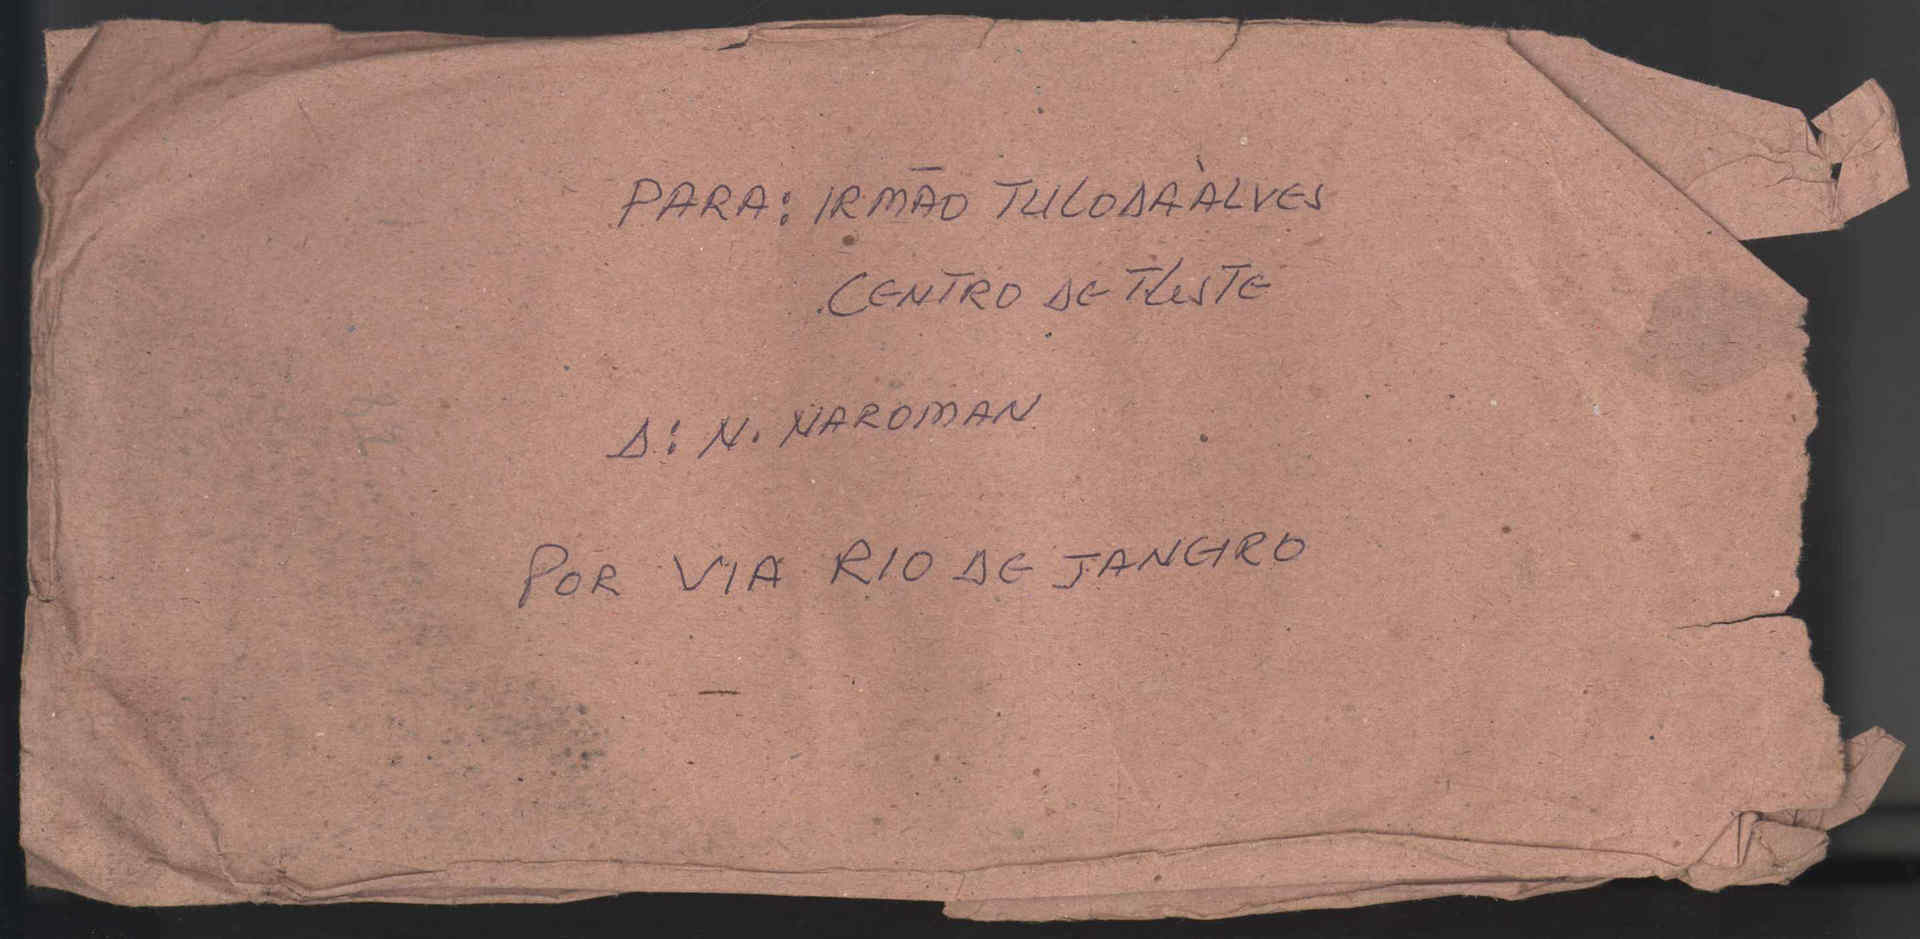 PARA: IRMÃO TULODAÀLVES
CENTRO DE TLESTE
D: N. NAROMAN
POR VIA RIO DE JANEIRO